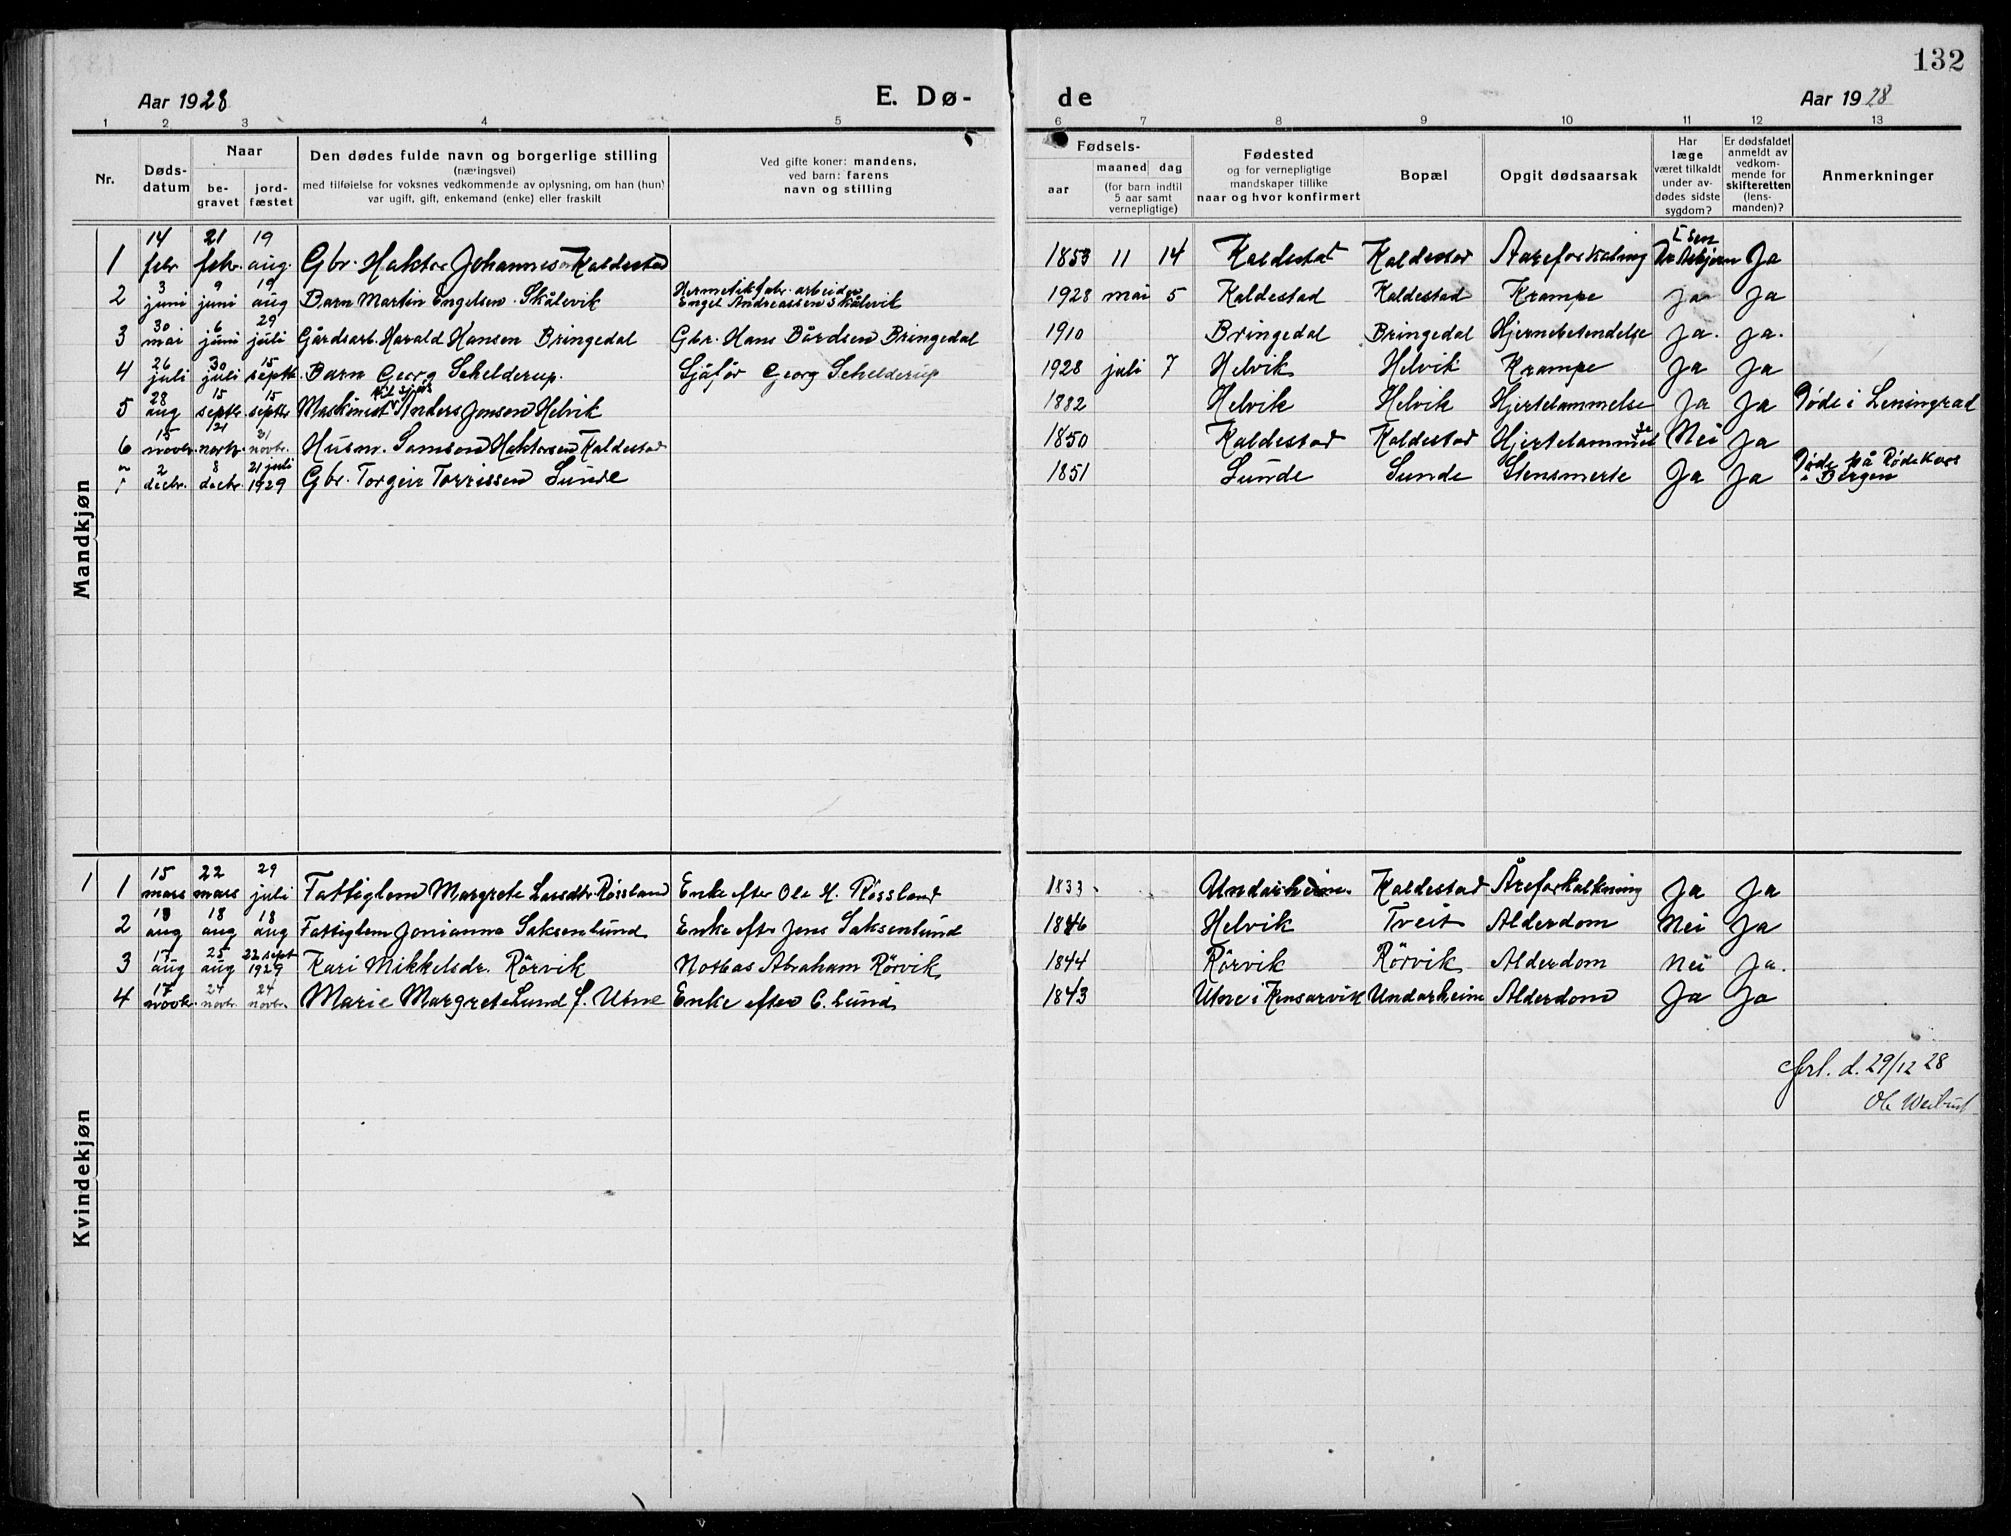 132
Aar 1928 E. Dø- de Aar 1928
1 2 3 4 5 6 7 8 9 10 11 12 13
Nr.
Døds-
datum
Naar
be-
gravet
jord-
fæstet
Den dødes fulde navn og borgerlige stilling
(næringsvei)
med tilføielse for voksnes vedkommende av oplysning, om han (hun)
var ugift, gift, enkemand (enke) eller fraskilt
Ved gifte koner: mandens,
ved barn: farens
navn og stilling
Fødsels-
aar
maaned dag
(for barn indtil
5 aar samt
vernepligtige)
Fødested
og for vernepligtige
mandskaper tillike
naar og hvor konfirmert
Bopæl
Opgit dødsaarsak
Har
læge
været tilkaldt
under av-
dødes sidste
sygdom?
Er dødsfaldet
anmeldt av
vedkom-
mende for
skifteretten
(lens-
manden)?
Anmerkninger
Mandkjøn
1 14 febr. 21 febr. 19 aug. Gbr. Haktor Johanneson Kaldestad 1853 11 14 Kaldestad Kaldestad Aareforkalning Ja
2 3 juni 9 juni 19 aug Barn Martin Engelsen Skålevik Hermetikfabr. arbeider Engel Andreassen Skålevik 1928 mai 5 Kaldestad Kaldestad Krampe ja Ja
3 30 mai 6 juni 29 juli Gårdsarb. Harald Hansen Bringedal Gbr. Hans Bårdsen Bringedal 1910 Bringedal Bringedal Hjernebetendelse ja. ja.
4 26 juli 30 juli 15 septb. Barn Georg Schelderup. Sjåfør Georg Schelderup 1928 juli 7 Helvik Helvik Krampe Ja Ja
5 28 aug 15 septbr 15 septbr Maskinist til sjøs Anders Jonson Helvik 1882 Helvik Helvik Hjertelammelse Ja Ja Døde i Leningrad
6 15 novbr. 21 novbr. 21 novbr. Husm. Samson Haktorsen Kaldestad 1850 Kaldestad Kaldestad Hjertelammelse Nei Ja
7 2 decbr. 8 decbr. 21 juli 1929 Gbr. Torgeir Torrissen Sunde 1851 Sunde Sunde Stensmerte Ja Ja Døde på Rødekors i Bergen
Kvindekjøn
1 1 15 mars 22 mars 29 juli Fattiglem Margrete Larsdtr. Røssland Enke efter Ole H. Røssland 1833 Undarheim. Kaldestad Åreforkalkning Ja Ja
2 aug 18 aug 18 aug Fattiglem Jonianna Saksenlund Enke eftr Jens Saksenlund 1846 Helvik Tveit Alderdom Nei Ja
3 17 aug 25 aug 22 sept 1929 Kari Mikkelsdr. Rörvik Notbas Abraham Rörvik 1844 Rörvik Rörvik Alderdom Nei Ja.
4 17 novbr. 24 novbr. 24 novbr. Marie Margrete Lund f. Utne Enke efter C. Lund 1843 Utne i Kinsarvik Undarheim Alderdom Ja Ja
d. 29/12 28
Ole